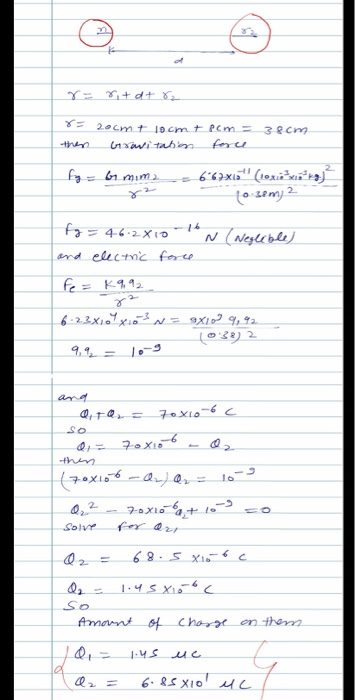 r1
r2
d
r = r1 + d + r2
r = 20cm + 10cm + 8cm = 38cm
then Gravitation force
Fg = G m1m2 / r² = 6.67×10⁻¹¹ (10×10⁻³×10⁻³kg)² / (0.38m)²
Fg = 46.2×10⁻¹⁶ N (Neglible)
and electric force
Fe = Kq1q2 / r²
6.23×10⁴×10⁻³ N = 9×10⁹ q1q2 / (0.38)2
q1q2 = 10⁻⁹
and
Q1+Q2 = 70×10⁻⁶ C
so
Q1 = 70×10⁻⁶ - Q2
then
(70×10⁻⁶ - Q2) Q2 = 10⁻⁹
Q2² - 70×10⁻⁶Q2 + 10⁻⁹ = 0
Solve for Q2,
Q2 = 68.5 ×10⁻⁶ C
Q2 = 1.45×10⁻⁶ C
So
Amount of charge on them
Q1 = 1.45 μC
Q2 = 6.85×10¹ μC